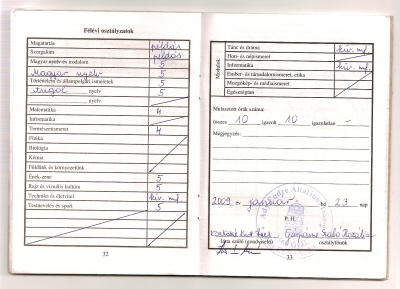 Félévi osztályzatok
Magatartás példás
Szorgalom példás
Magyar nyelv és irodalom 5
Magyar nyelv 5
Történelem és állampolgári ismeretek 5
angol nyelv 5
nyelv
Matematika 4
Informatika
Természetismeret 4
Fizika
Biológia
Kémia
Földünk és környezetünk
Ének-zene 5
Rajz és vizuális kultúra 5
Technika és életvitel kiv. mf.
Testnevelés és sport 5
32
Modulok
Tánc és dráma kiv. mf.
Hon- és népismeret
Informatika kiv. mf.
Ember- és társadalomismeret, etika
Mozgókép- és médiaismeret
Egészségtan
Mulasztott órák száma:
összes 10 igazolt 10 igazolatlan -
Megjegyzés:
2009 év január hó 23 nap
P. H.
Szabó
látta szülő (gondviselő) osztályfőnök
33